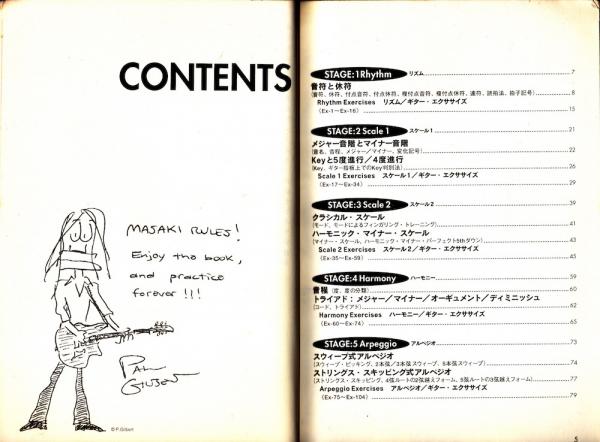 CONTENTS
MASAKI RULES!
Enjoy the book,
and practice
forever!!!
PAUL GILBERT
© P.Gilbert
STAGE:1 Rhythm リズム 7
音符と休符
(音符、休符、付点音符、付点休符、複付点音符、複付点休符、連符、諸拍法、拍子記号) 8
Rhythm Exercises リズム/ギター・エクササイズ
(Ex-1~Ex-16) 15
STAGE:2 Scale 1 スケール1 21
メジャー音階とマイナー音階
(音名、音程、メジャー/マイナー、変化記号) 22
Keyと5度進行/4度進行
(Key、ギター指板上でのKey判別法) 26
Scale 1 Exercises スケール1/ギター・エクササイズ
(Ex-17~Ex-34) 29
STAGE:3 Scale 2 スケール2 39
クラシカル・スケール
(モード、モードによるフィンガリング・トレーニング) 41
ハーモニック・マイナー・スケール
(マイナー・スケール、ハーモニック・マイナー・パーフェクト5thダウン) 43
Scale 2 Exercises スケール2/ギター・エクササイズ
(Ex-35~Ex-59) 45
STAGE:4 Harmony ハーモニー 59
音程 (度、度の分類) 60
トライアド:メジャー/マイナー/オーギュメント/ディミニッシュ
(コード、トライアド) 62
Harmony Exercises ハーモニー/ギター・エクササイズ
(Ex-60~Ex-74) 65
STAGE:5 Arpeggio アルペジオ 73
スウィープ式アルペジオ
(スウィープ・ピッキング、2本弦/3本弦スウィープ、5本弦スウィープ) 74
ストリングス・スキッピング式アルペジオ
(ストリングス・スキッピング、4弦ルートの2弦越えフォーム、5弦ルートの3弦越えフォーム) 77
Arpeggio Exercises アルペジオ/ギター・エクササイズ
(Ex-75~Ex-104) 79
5